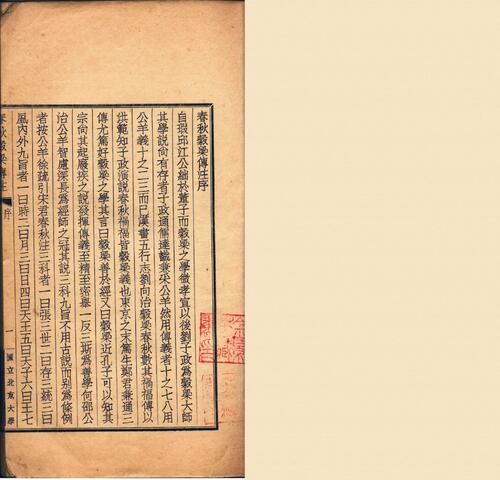 春秋穀梁傳注序
自瑕邱江公絀於董子而穀梁之學微孝宣以後劉子政爲穀梁大師
其學說尙有存者子政通儒達識兼采公羊然用傳義者十之七八用
公羊義十之二三而已漢書五行志劉向治穀梁春秋數其禍福傅以
洪範知子政演說春秋禍福皆穀梁義也東京之末篤生鄭君兼通三
傳尤篤好穀梁之學其言曰穀梁善於經又曰穀梁近孔子可以知其
宗向其起廢疾之說發揮傳義至精至密舉一反三斯爲善學何邵公
治公羊智慮深長爲經師之冠其說三科九旨不用古說而别爲條例
者按公羊徐疏引宋君春秋注三科者一曰張三世二曰存三統三曰
異內外九旨者一曰時二曰月三曰日四曰天王五曰天子六曰王七
春秋穀梁傳注 序 一 國立北京大學